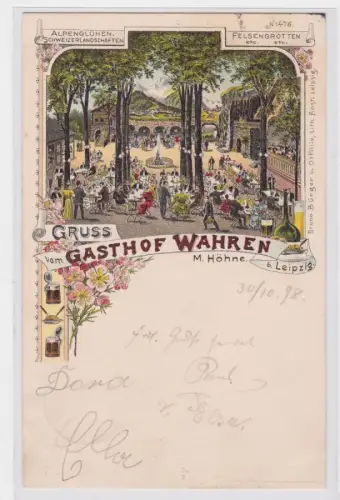 ALPENGLÜHEN.
SCHWEIZERLANDSCHAFTEN
No 476.
FELSENGROTTEN
etc. etc.
Bruno Bürger u. Ottillie, Lith. Anst. Leipzig
GRUSS
vom GASTHOF WAHREN
M. Höhne.
b. Leipzig
30/10. 98.
Dora
Paul